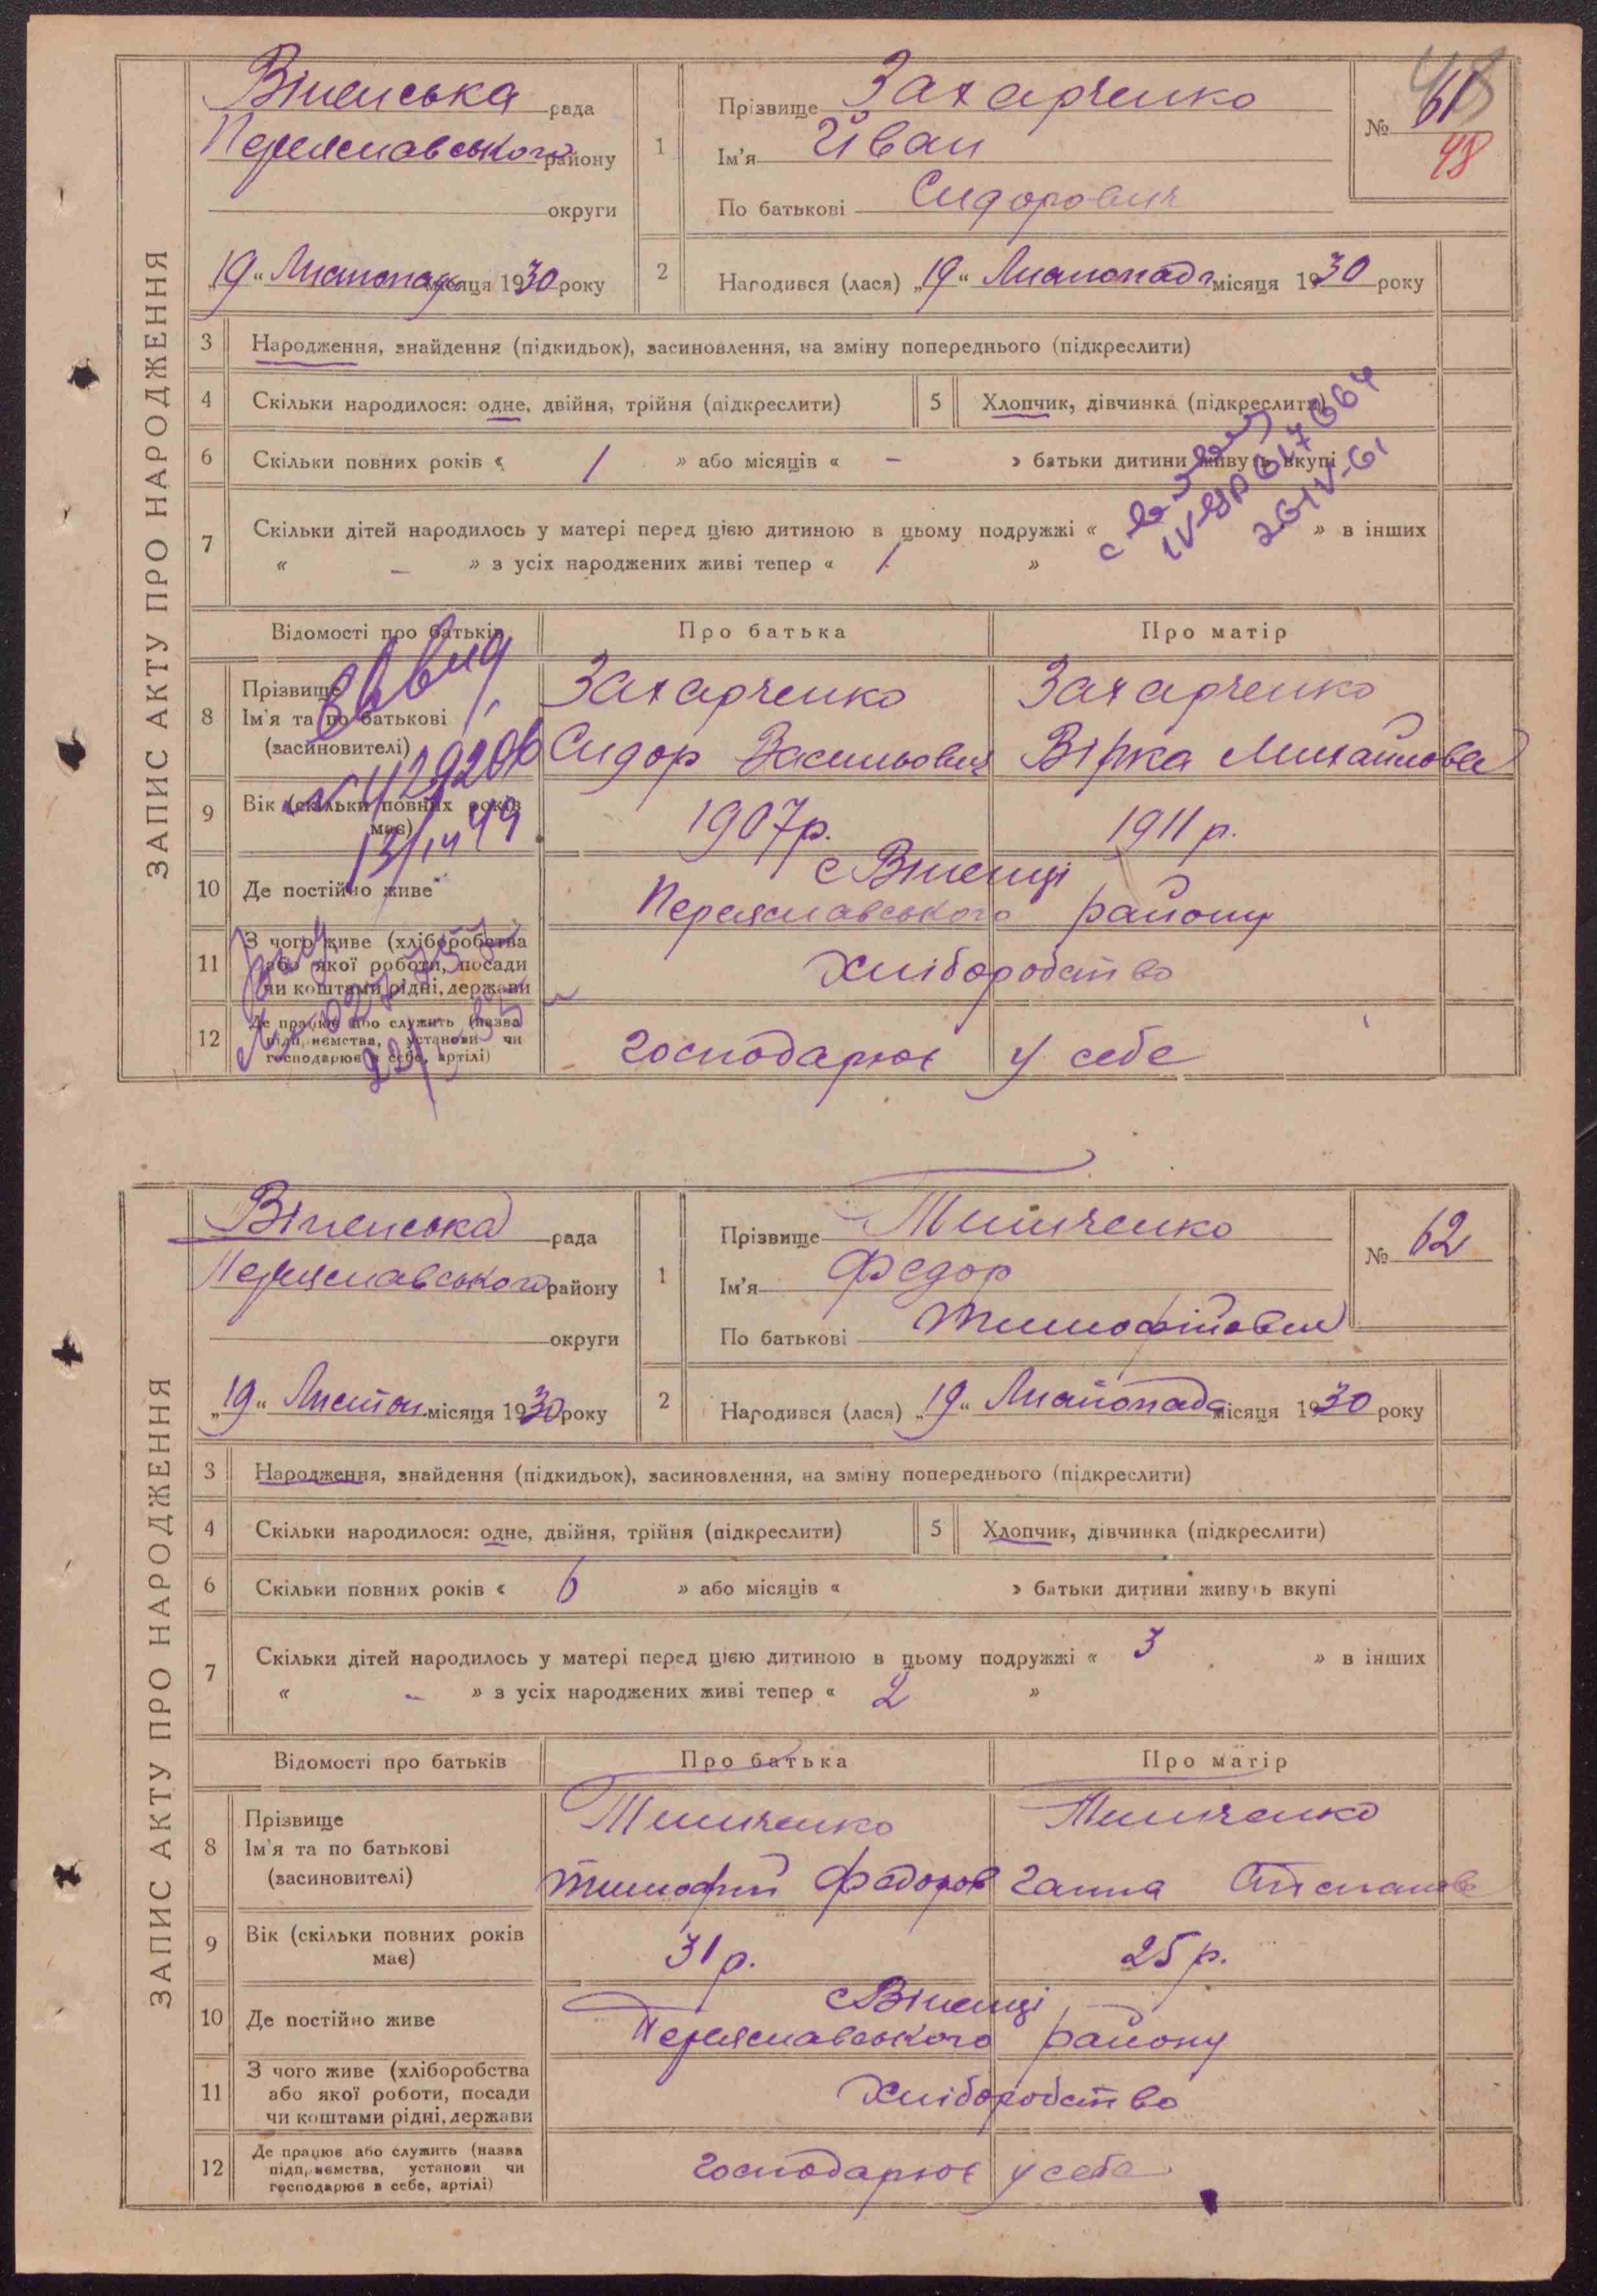 ЗАПИС АКТУ ПРО НАРОДЖЕННЯ
Віненська рада
Переяславського району
округи
"19" Листопада місяця 1930 року
1 Прізвище Захарченко
Ім'я Йван
По батькові Сидорович
№ 61
48
48
2 Народився (лася) "19" Листопада місяця 1930 року
3 Народження, знайдення (підкидьок), засиновлення, на зміну попереднього (підкреслити)
4 Скільки народилося: одне, двійня, трійня (підкреслити) 5 Хлопчик, дівчинка (підкреслити)
6 Скільки повних років « 1 » або місяців « – » батьки дитини живуть вкупі
7 Скільки дітей народилось у матері перед цією дитиною в цьому подружжі « » в інших
« – » з усіх народжених живі тепер « 1 »
26-IV-61
Відомості про батьків Про батька Про матір
8 Прізвище Захарченко Захарченко
Ім'я та по батькові
(засиновителі) Сидор Васильович Вірка Михайлова
9 Вік (скільки повних років має) 1907р. 1911 р.
10 Де постійно живе с Віненці
Переяславського району
11 З чого живе (хліборобства
або якої роботи, посади
чи коштами рідні, держави Хліборобство
12 Де працює або служить (назва
підприємства, установи чи
господарює в себе, артілі) Господарює у себе
ЗАПИС АКТУ ПРО НАРОДЖЕННЯ
Віненська рада
Переяславського району
округи
"19" Листоп. місяця 1930 року
1 Прізвище Тимченко
Ім'я Федор
По батькові Тимофійович
№ 62
2 Народився (лася) "19" Листопада місяця 1930 року
3 Народження, знайдення (підкидьок), засиновлення, на зміну попереднього (підкреслити)
4 Скільки народилося: одне, двійня, трійня (підкреслити) 5 Хлопчик, дівчинка (підкреслити)
6 Скільки повних років « 6 » або місяців « » батьки дитини живуть вкупі
7 Скільки дітей народилось у матері перед цією дитиною в цьому подружжі « 3 » в інших
« – » з усіх народжених живі тепер « 2 »
Відомості про батьків Про батька Про матір
8 Прізвище Тимченко Тимченко
Ім'я та по батькові
(засиновителі) Тимофій Федоров Ганна Степанов
9 Вік (скільки повних років
має) 31 р. 25 р.
10 Де постійно живе с Віненці
Переяславського району
11 З чого живе (хліборобства
або якої роботи, посади
чи коштами рідні, держави Хліборобство
12 Де працює або служить (назва
підприємства, установи чи
господарює в себе, артілі) Господарює у себе